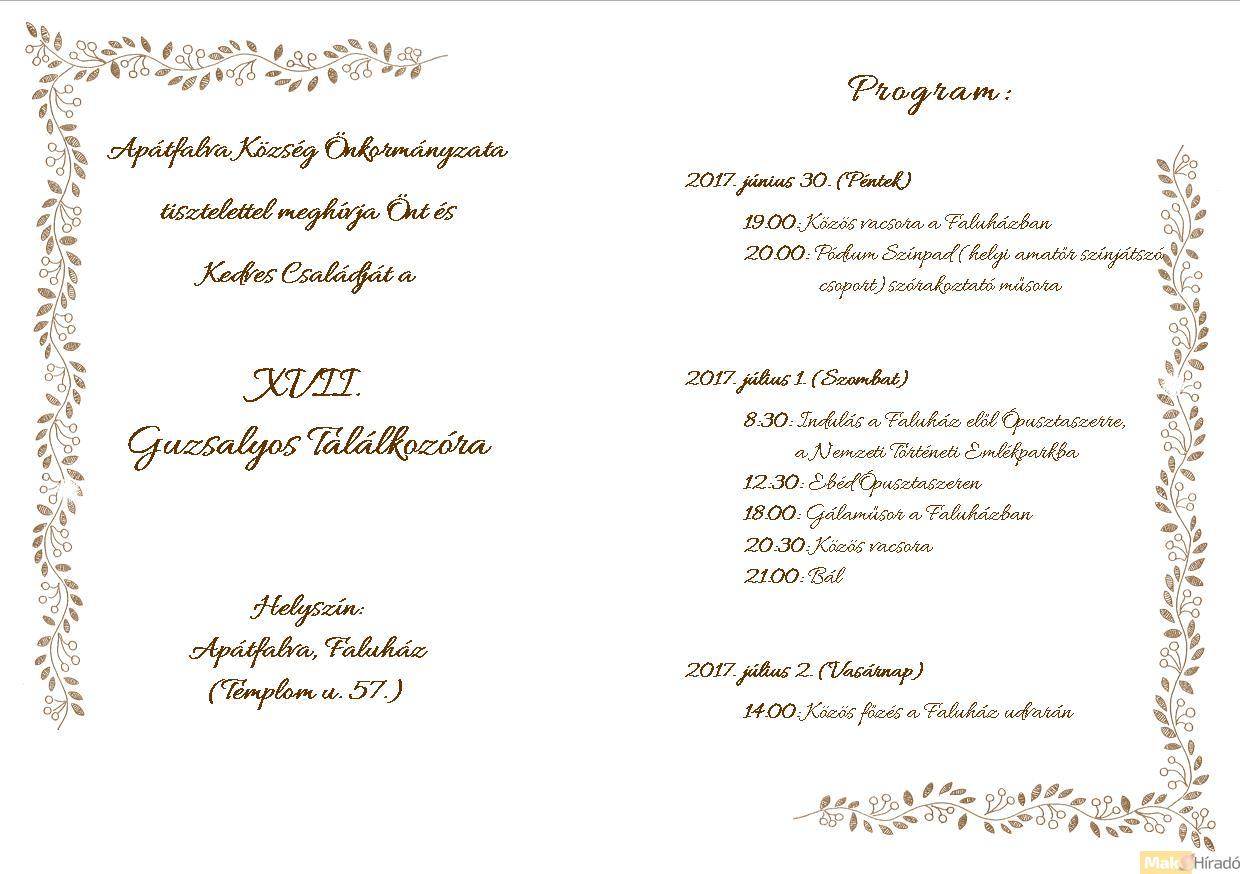 Apátfalva Község Önkormányzata
tisztelettel meghívja Önt és
Kedves Családját a
XVII.
Guzsalyos Találkozóra
Helyszín:
Apátfalva, Faluház
(Templom u. 57.)
Program:
2017. június 30. (Péntek)
19.00: Közös vacsora a Faluházban
20.00: Pódium Színpad ( helyi amatőr színjátszó
csoport) szórakoztató műsora
2017. július 1. (Szombat)
8.30: Indulás a Faluház elől Ópusztaszerre,
a Nemzeti Történeti Emlékparkba
12.30: Ebéd Ópusztaszeren
18.00: Gálaműsor a Faluházban
20.30: Közös vacsora
21.00: Bál
2017. július 2. (Vasárnap)
14.00: Közös főzés a Faluház udvarán
Makó Híradó